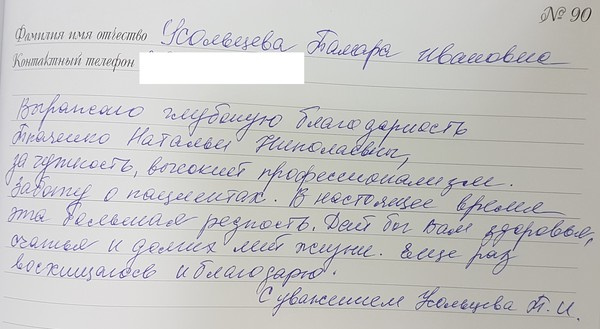 № 90
Фамилия имя отчество Усольцева Тамара Ивановна
Контактный телефон
Выражаю глубокую благодарность
Ткаченко Натальи Николаевны,
за чуткость, высокий профессионализм.
Заботу о пациентах. В настоящее время
эта большая редкость. Дай бог Вам здоровья,
счастья и долгих лет жизни. Еще раз
восхищаюсь и благодарю.
С уважением Усольцева Т.И.